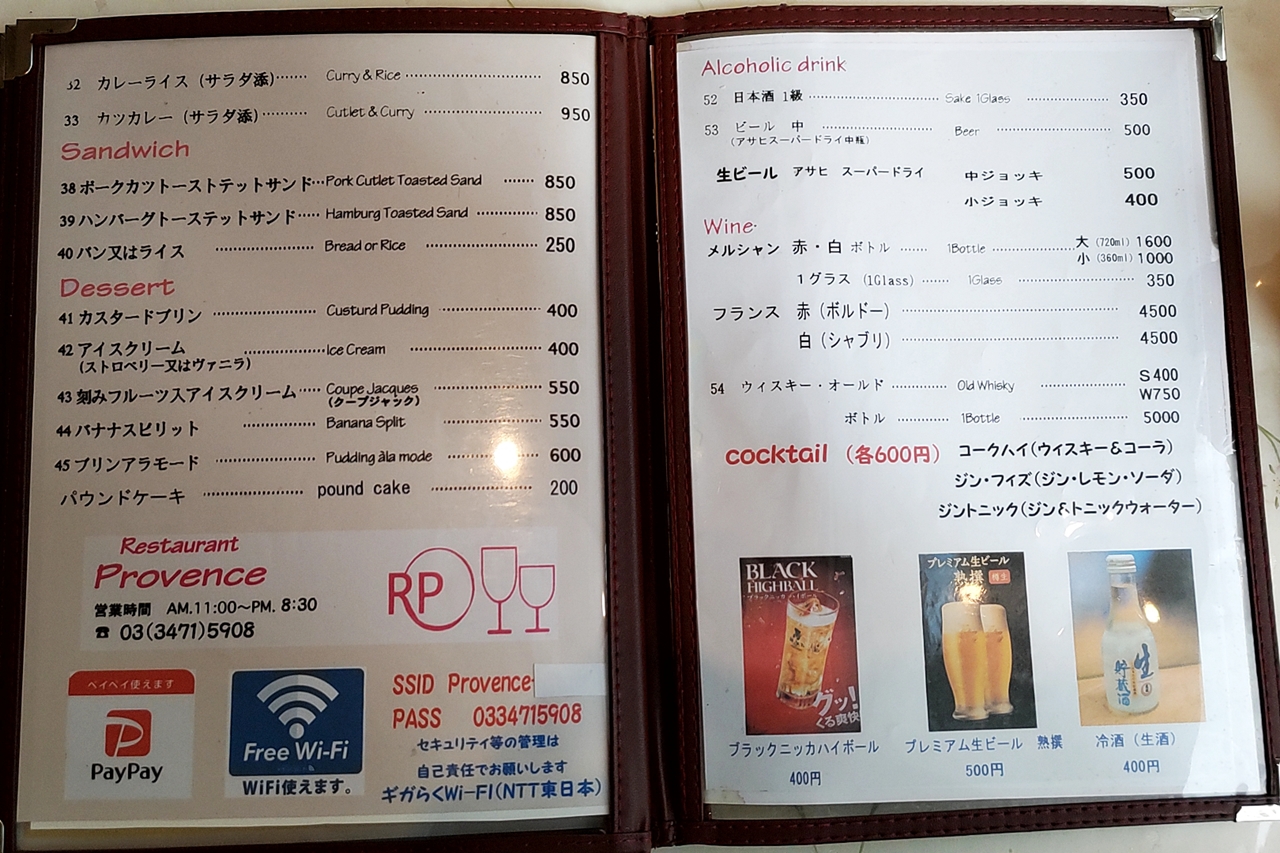 32 カレーライス (サラダ添)······· Curry & Rice ······························ 850
33 カツカレー (サラダ添)··········· Cutlet & Curry ························ 950
Sandwich
38 ポークカツトーストテットサンド··· Pork Cutlet Toasted Sand ······· 850
39 ハンバーグトーステットサンド····· Hamburg Toasted Sand ·············· 850
40 パン又はライス ······················ Bread or Rice ························· 250
Dessert
41 カスタードプリン ······················ Custurd Pudding ······················ 400
42 アイスクリーム ······················ Ice Cream ······························ 400
(ストロベリー又はヴァニラ)
43 刻みフルーツ入アイスクリーム····· Coupe Jacques ························ 550
(クープジャック)
44 バナナスピリット ················ Banana Split ······················ 550
45 プリンアラモード ······················ Pudding àla mode ···················· 600
パウンドケーキ ······················ pound cake ······················ 200
Restaurant
Provence
営業時間 AM.11:00～PM. 8:30
☎ 03(3471)5908
RP
ペイペイ使えます
PayPay
Free Wi-Fi
WiFi使えます。
SSID Provence-
PASS 0334715908
セキュリティ等の管理は
自己責任でお願いします
ギガらくWi-FI(NTT東日本)
Alcoholic drink
52 日本酒 1級 ································ Sake 1Glass ···················· 350
53 ビール 中 ························ Beer ························ 500
(アサヒスーパードライ中瓶)
生ビール アサヒ スーパードライ 中ジョッキ 500
小ジョッキ 400
Wine
メルシャン 赤・白 ボトル ······ 1Bottle ···················· 大 (720ml) 1600
小 (360ml) 1000
1グラス (1Glass) ······ 1Glass ···················· 350
フランス 赤 (ボルドー) ················································ 4500
白 (シャブリ) ················································ 4500
54 ウィスキー・オールド ············ Old Whisky ···················· S 400
W750
ボトル ················ 1Bottle ························ 5000
cocktail (各600円) コークハイ(ウイスキー&コーラ)
ジン・フィズ(ジン・レモン・ソーダ)
ジントニック(ジン&トニックウォーター)
BLACK
HIGHBALL
ブラックニッカハイボール
グッ!
くる爽快
プレミアム生ビール
熟撰
樽生
生
貯蔵酒
ブラックニッカハイボール
400円
プレミアム生ビール 熟撰
500円
冷酒 (生酒)
400円